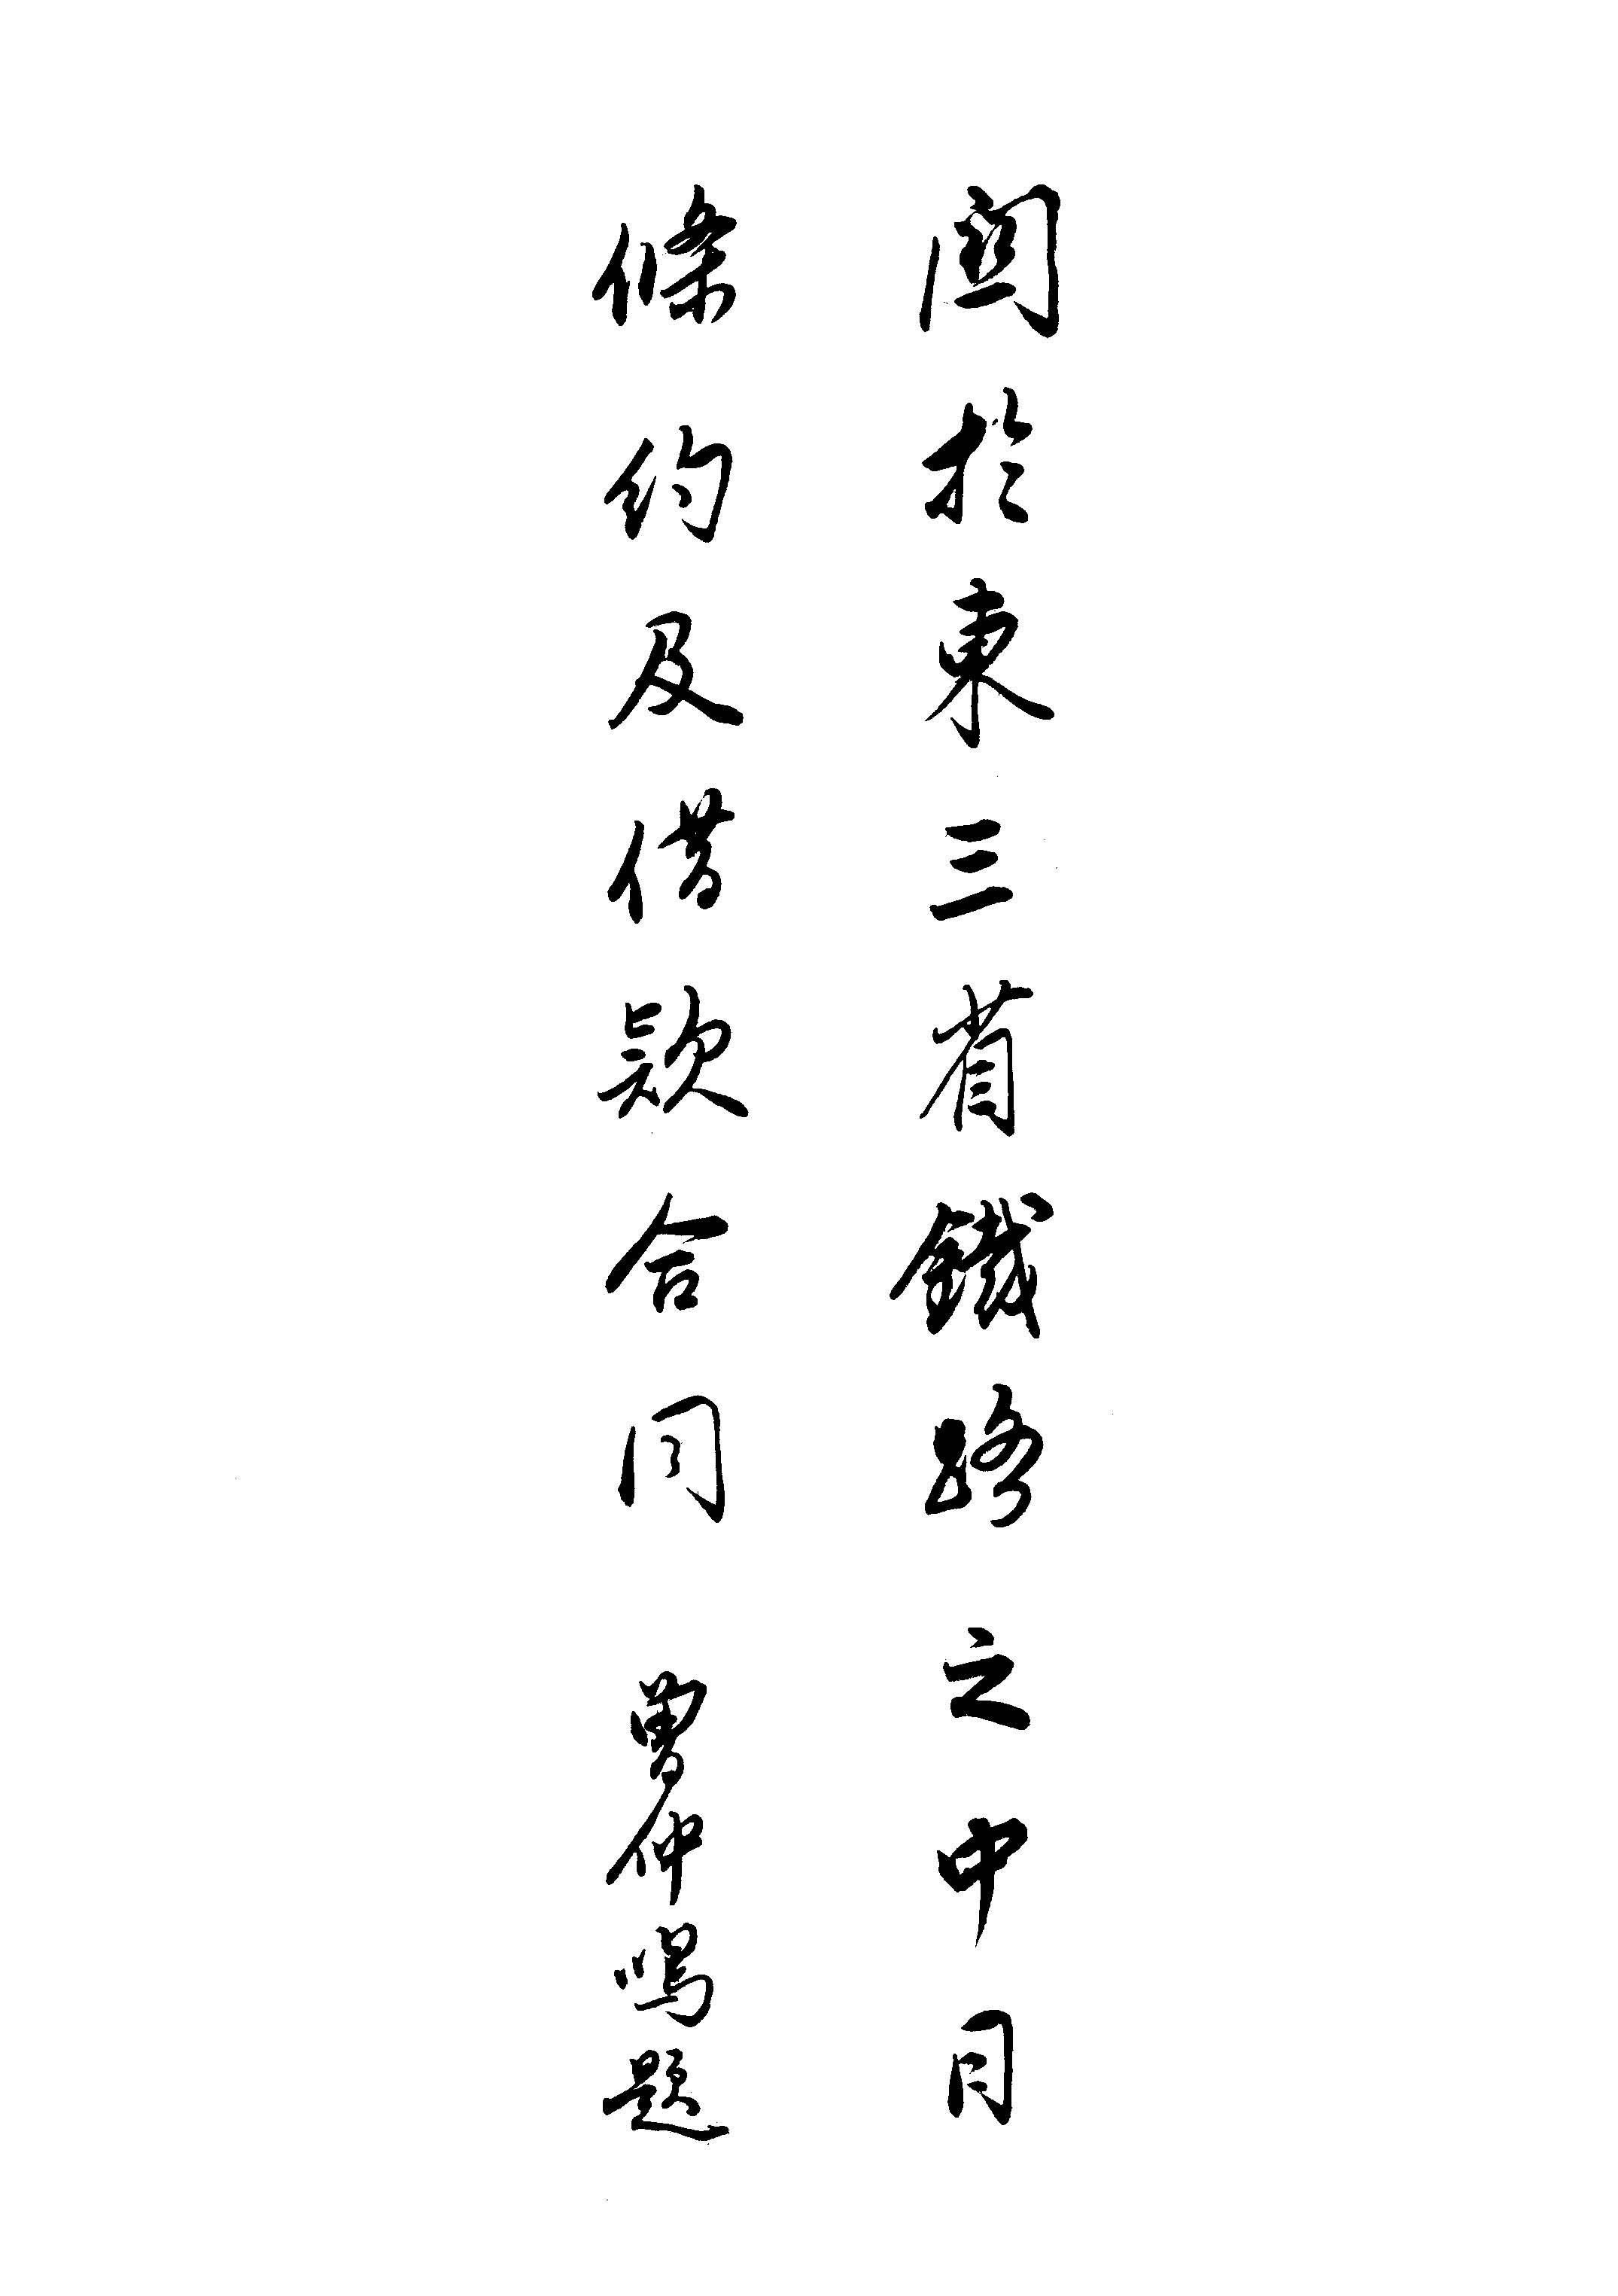 關於東三省鐵路之中日
條約及借款合同 曾仲鳴題